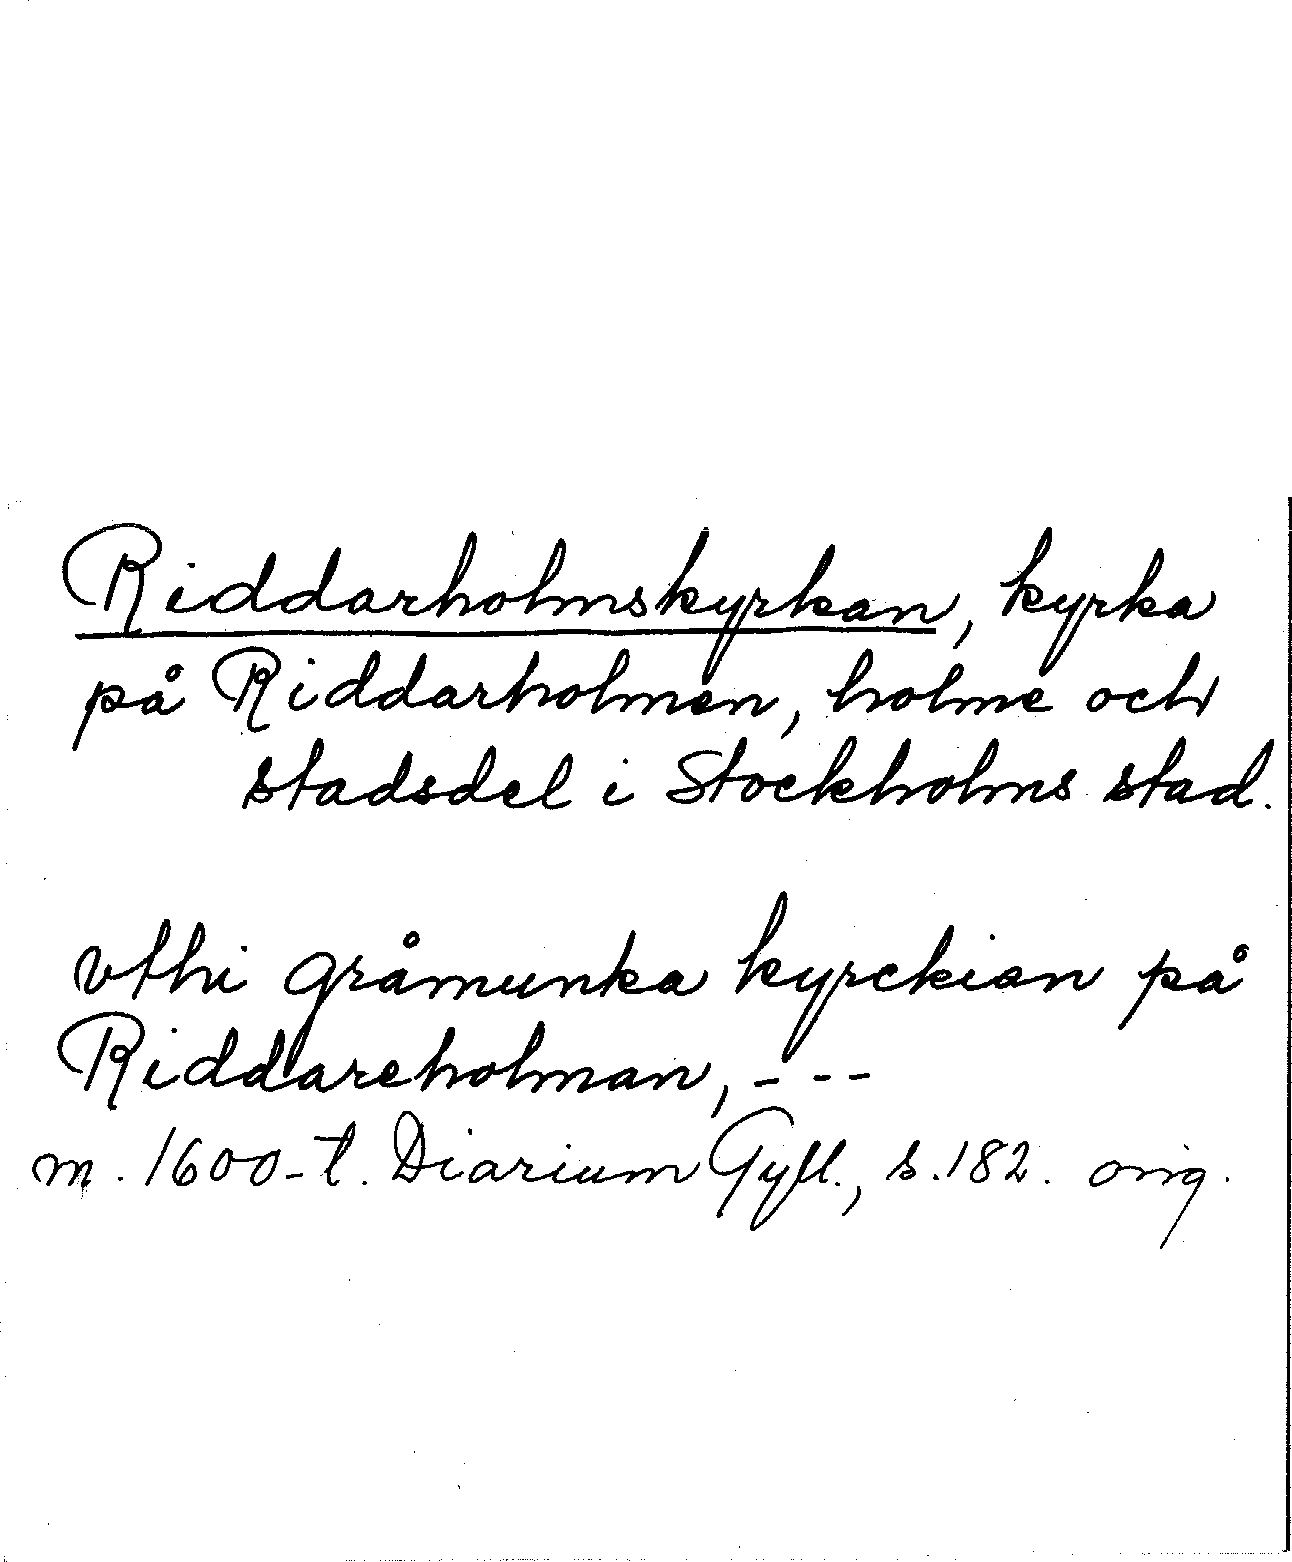 Riddarholmskyrkan, kyrka
på Riddarholmen, holme och
stadsdel i Stockholms stad.
vthi gråmunka kyrckian på
Riddareholman, - - -
m. 1600-t. Diarium Gyll., s. 182. orig.